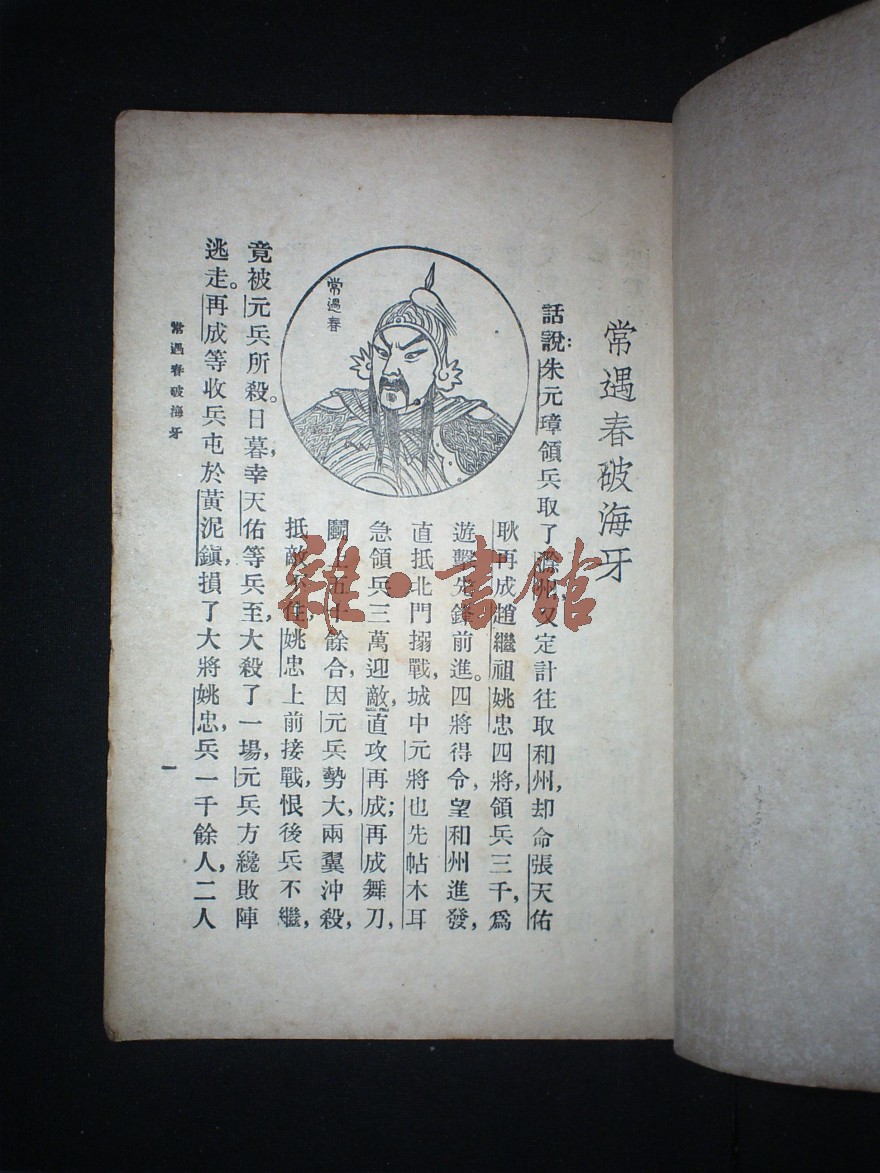 常遇春破海牙
話說:朱元璋領兵取了滁州,又定計往取和州,却命張天佑
耿再成趙繼祖姚忠四將,領兵三千,爲
遊擊先鋒前進。四將得令,望和州進發,
直抵北門搦戰,城中元將也先帖木耳
急領兵三萬迎敵,直攻再成;再成舞刀,
鬭上五十餘合,因元兵勢大,兩翼沖殺,
抵敵不住,姚忠上前接戰,恨後兵不繼,
竟被元兵所殺。日暮,幸天佑等兵至,大殺了一場,元兵方纔敗陣
逃走。再成等收兵屯於黃泥鎮,損了大將姚忠,兵一千餘人,二人
常遇春
常遇春破海牙
一
雜·書館